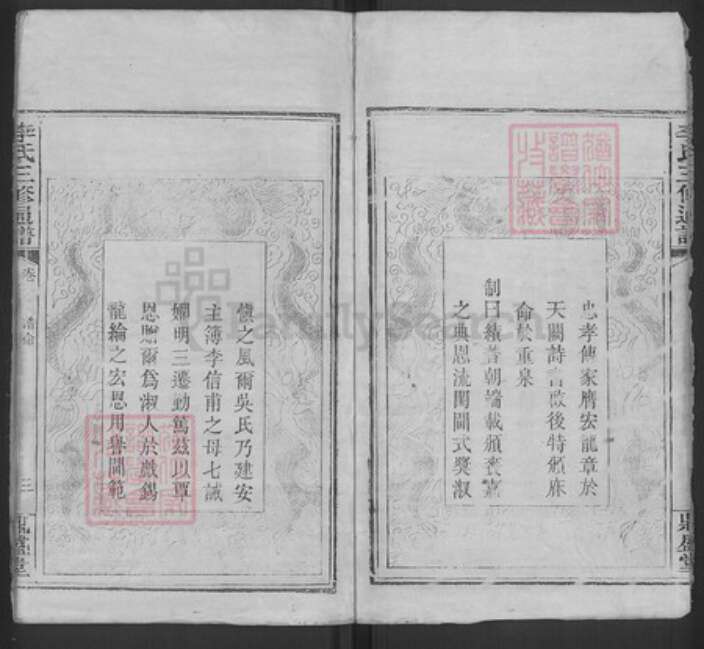 李氏三修通譜
忠孝傳家膺宏龍章於
天闕詩言啟後特頒庥
命於重泉
制曰績著朝端載頒褒嘉
之典恩流閨閫式獎淑
鼎盛堂
慎之風爾吳氏乃建安
主簿李信甫之母七誡
嫻明三遷勤篤茲以覃
恩贈爾為淑人於戲錫
龍綸之宏恩用譽閫範
李氏三修通譜
卷
誥命
三
鼎盛堂
FamilySearch